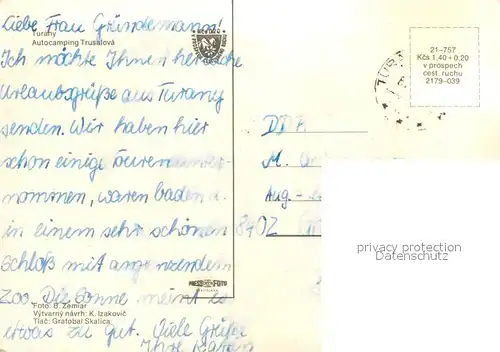 Liebe Frau Gründemann!
Turany
Autocamping Trusalová
Ich möchte Ihnen herzliche
Urlaubsgrüße aus Turany
senden. Wir haben hier
schon einige Touren unter-
nommen, waren baden u.
in einem sehr schönen
Schloß mit angrenzendem
Zoo. Die Sonne meint es
Foto: B. Zemiar
Výtvarný návrh: K. Izakovič
Tlač: Grafobal Skalica
etwas zu gut. Viele Grüße
Ihre
PRESSFOTO
BRATISLAVA
21-757
Kčs 1,40 + 0,20
v prospech
cest. ruchu
2179-039
DDR
M.
Aug.-
8402
privacy protection
Datenschutz